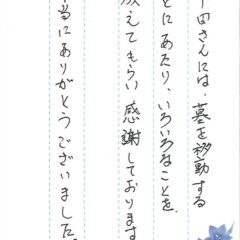 田さんには、墓を移動する
とにあたり、いろいろなことを
教えてもらい感謝しております
当にありがとうございました。